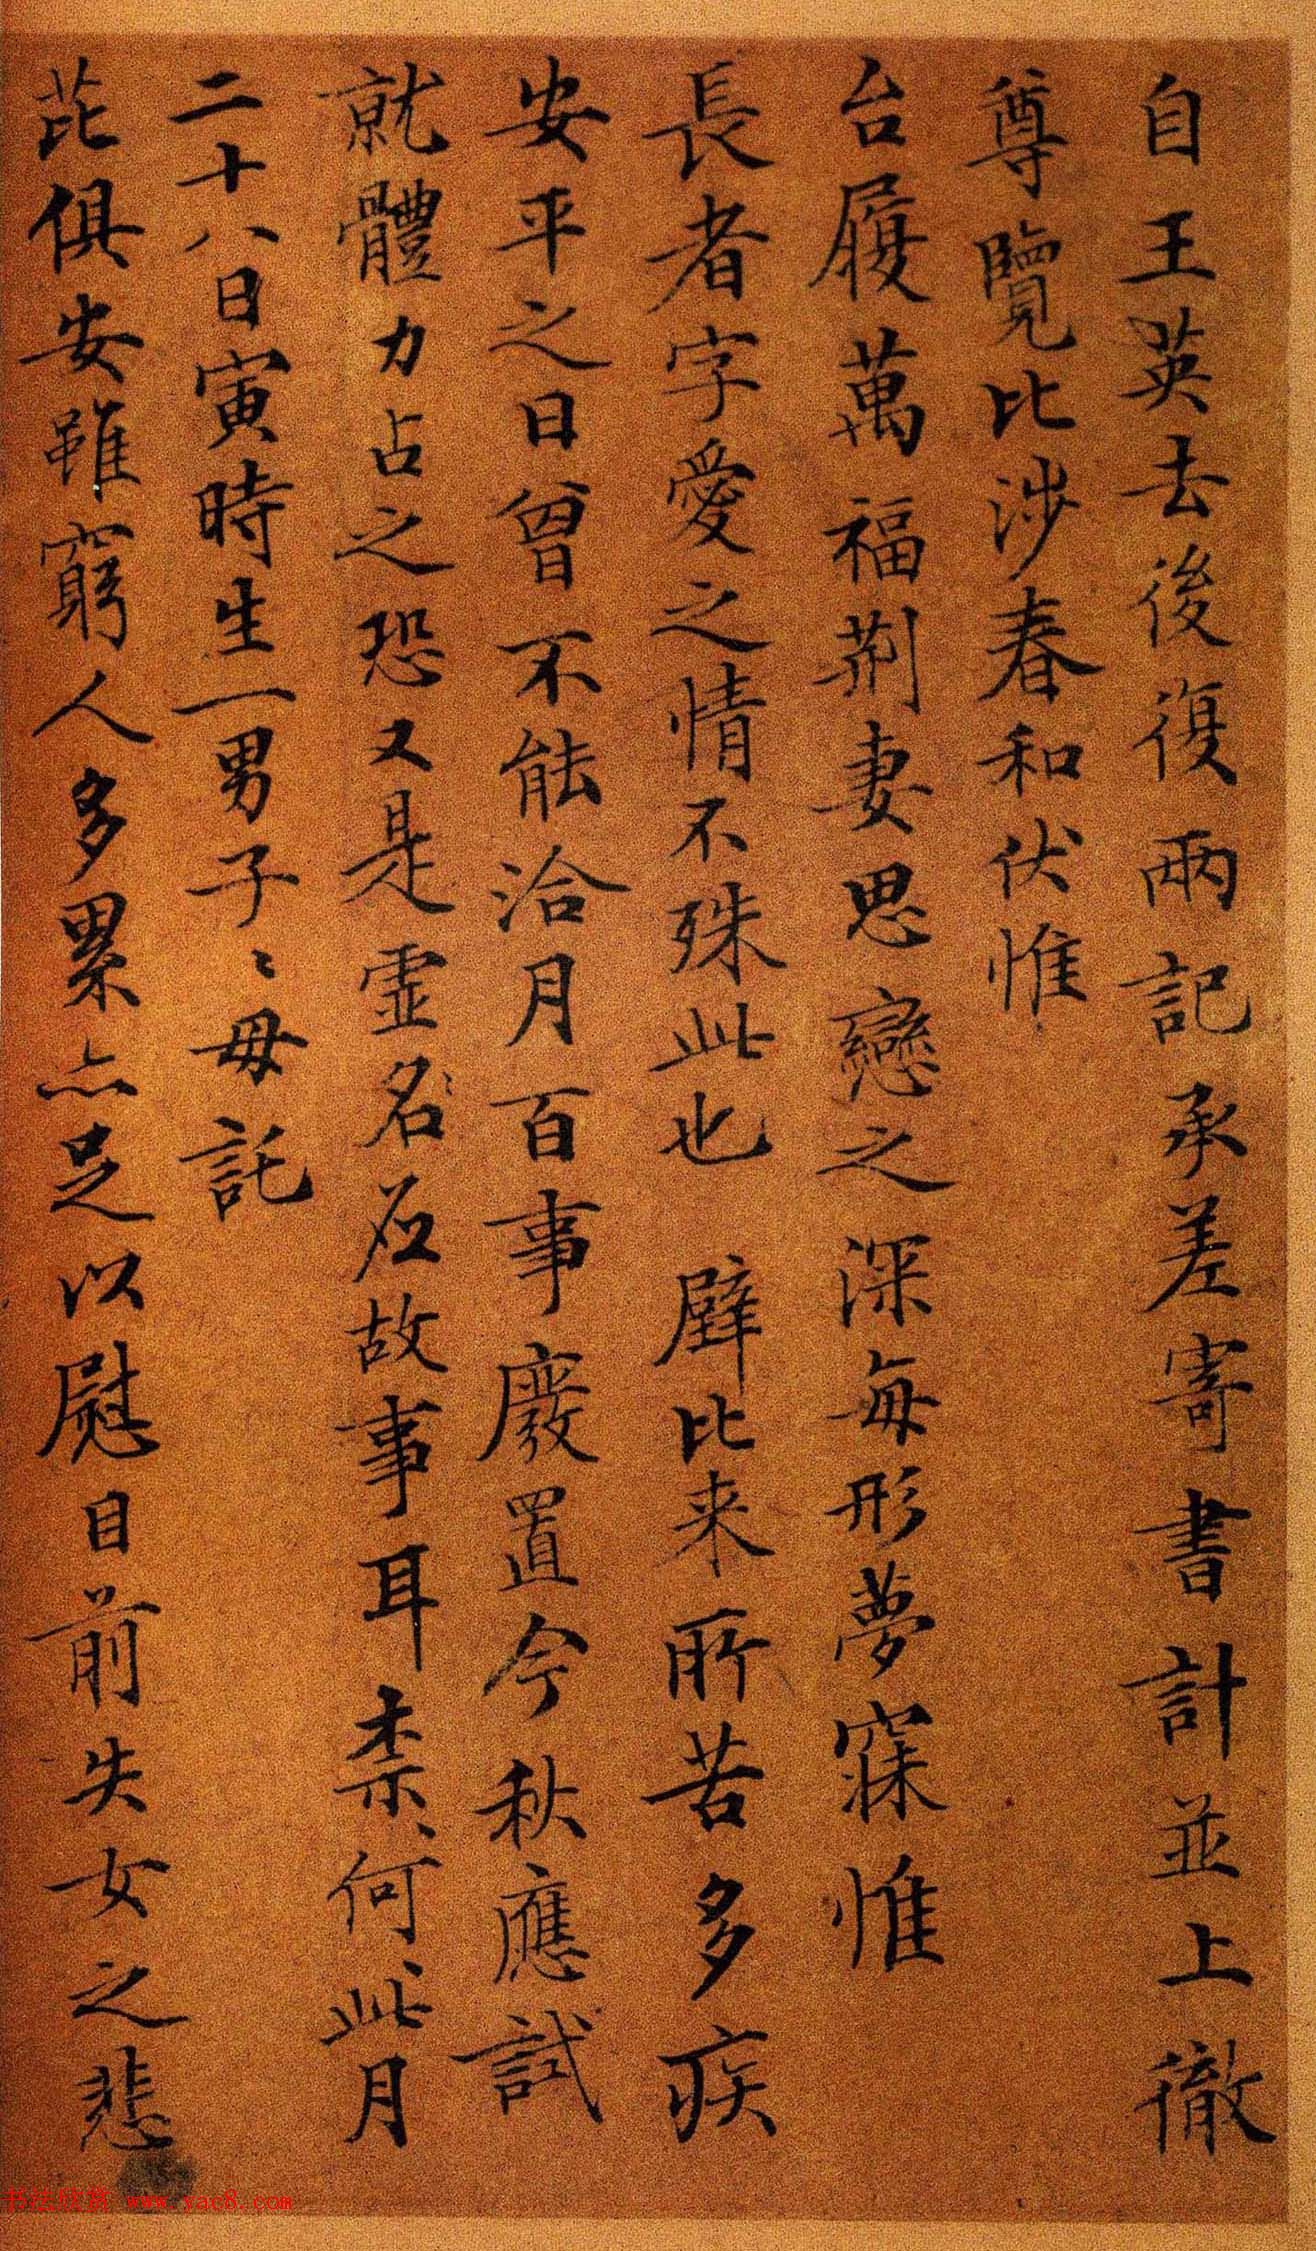 自王英去後復兩記承差寄書計並上徹
尊覽比涉春和伏惟
台履萬福荊妻思戀之深每形夢寐惟
長者字愛之情不殊此也 壁比来所苦多疾
安平之日曾不能洽月百事廢置今秋應試
就體力占之恐又是虛名應故事耳柰何此月
二十八日寅時生一男子〻母託
芘俱安雖窮人多累亦足以慰目前失女之悲
书法欣赏 www.yac8.com